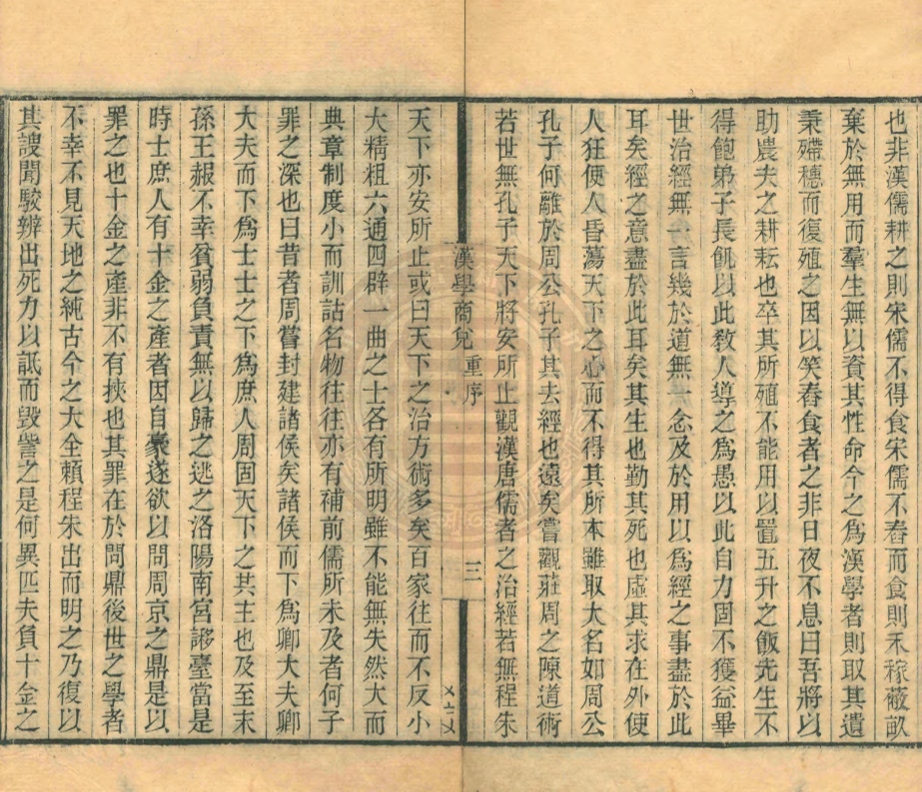 也非漢儒耕之則宋儒不得食宋儒不舂而食則禾稼蔽畝
棄於無用而羣生無以資其性命今之爲漢學者則取其遺
秉殢穗而復殖之因以笑舂食者之非日夜不息曰吾將以
助農夫之耕耘也卒其所殖不能用以置五升之飯先生不
得飽弟子長飢以此敎人導之爲愚以此自力固不獲益畢
世治經無一言幾於道無一念及於用以爲經之事盡於此
耳矣經之意盡於此耳矣其生也勤其死也虛其求在外使
人狂使人昏蕩天下之心而不得其所本雖取大名如周公
孔子何離於周公孔子其去經也遠矣嘗觀莊周之陳道術
若世無孔子天下將安所止觀漢唐儒者之治經若無程朱
漢學商兌 重序 三
天下亦安所止或曰天下之治方術多矣百家往而不反小
大精粗六通四辟一曲之士各有所明雖不能無失然大而
典章制度小而訓詁名物往往亦有補前儒所未及者何子
罪之深也曰昔者周嘗封建諸侯矣諸侯而下爲卿大夫卿
大夫而下爲士士之下爲庶人周固天下之共主也及至末
孫王赧不幸貧弱負責無以歸之逃之洛陽南宮謻臺當是
時士庶人有十金之產者因自豪遂欲以問周京之鼎是以
罪之也十金之產非不有挾也其罪在於問鼎後世之學者
不幸不見天地之純古今之大全賴程朱出而明之乃復以
其謏聞駮辨出死力以詆而毀訾之是何異匹夫負十金之